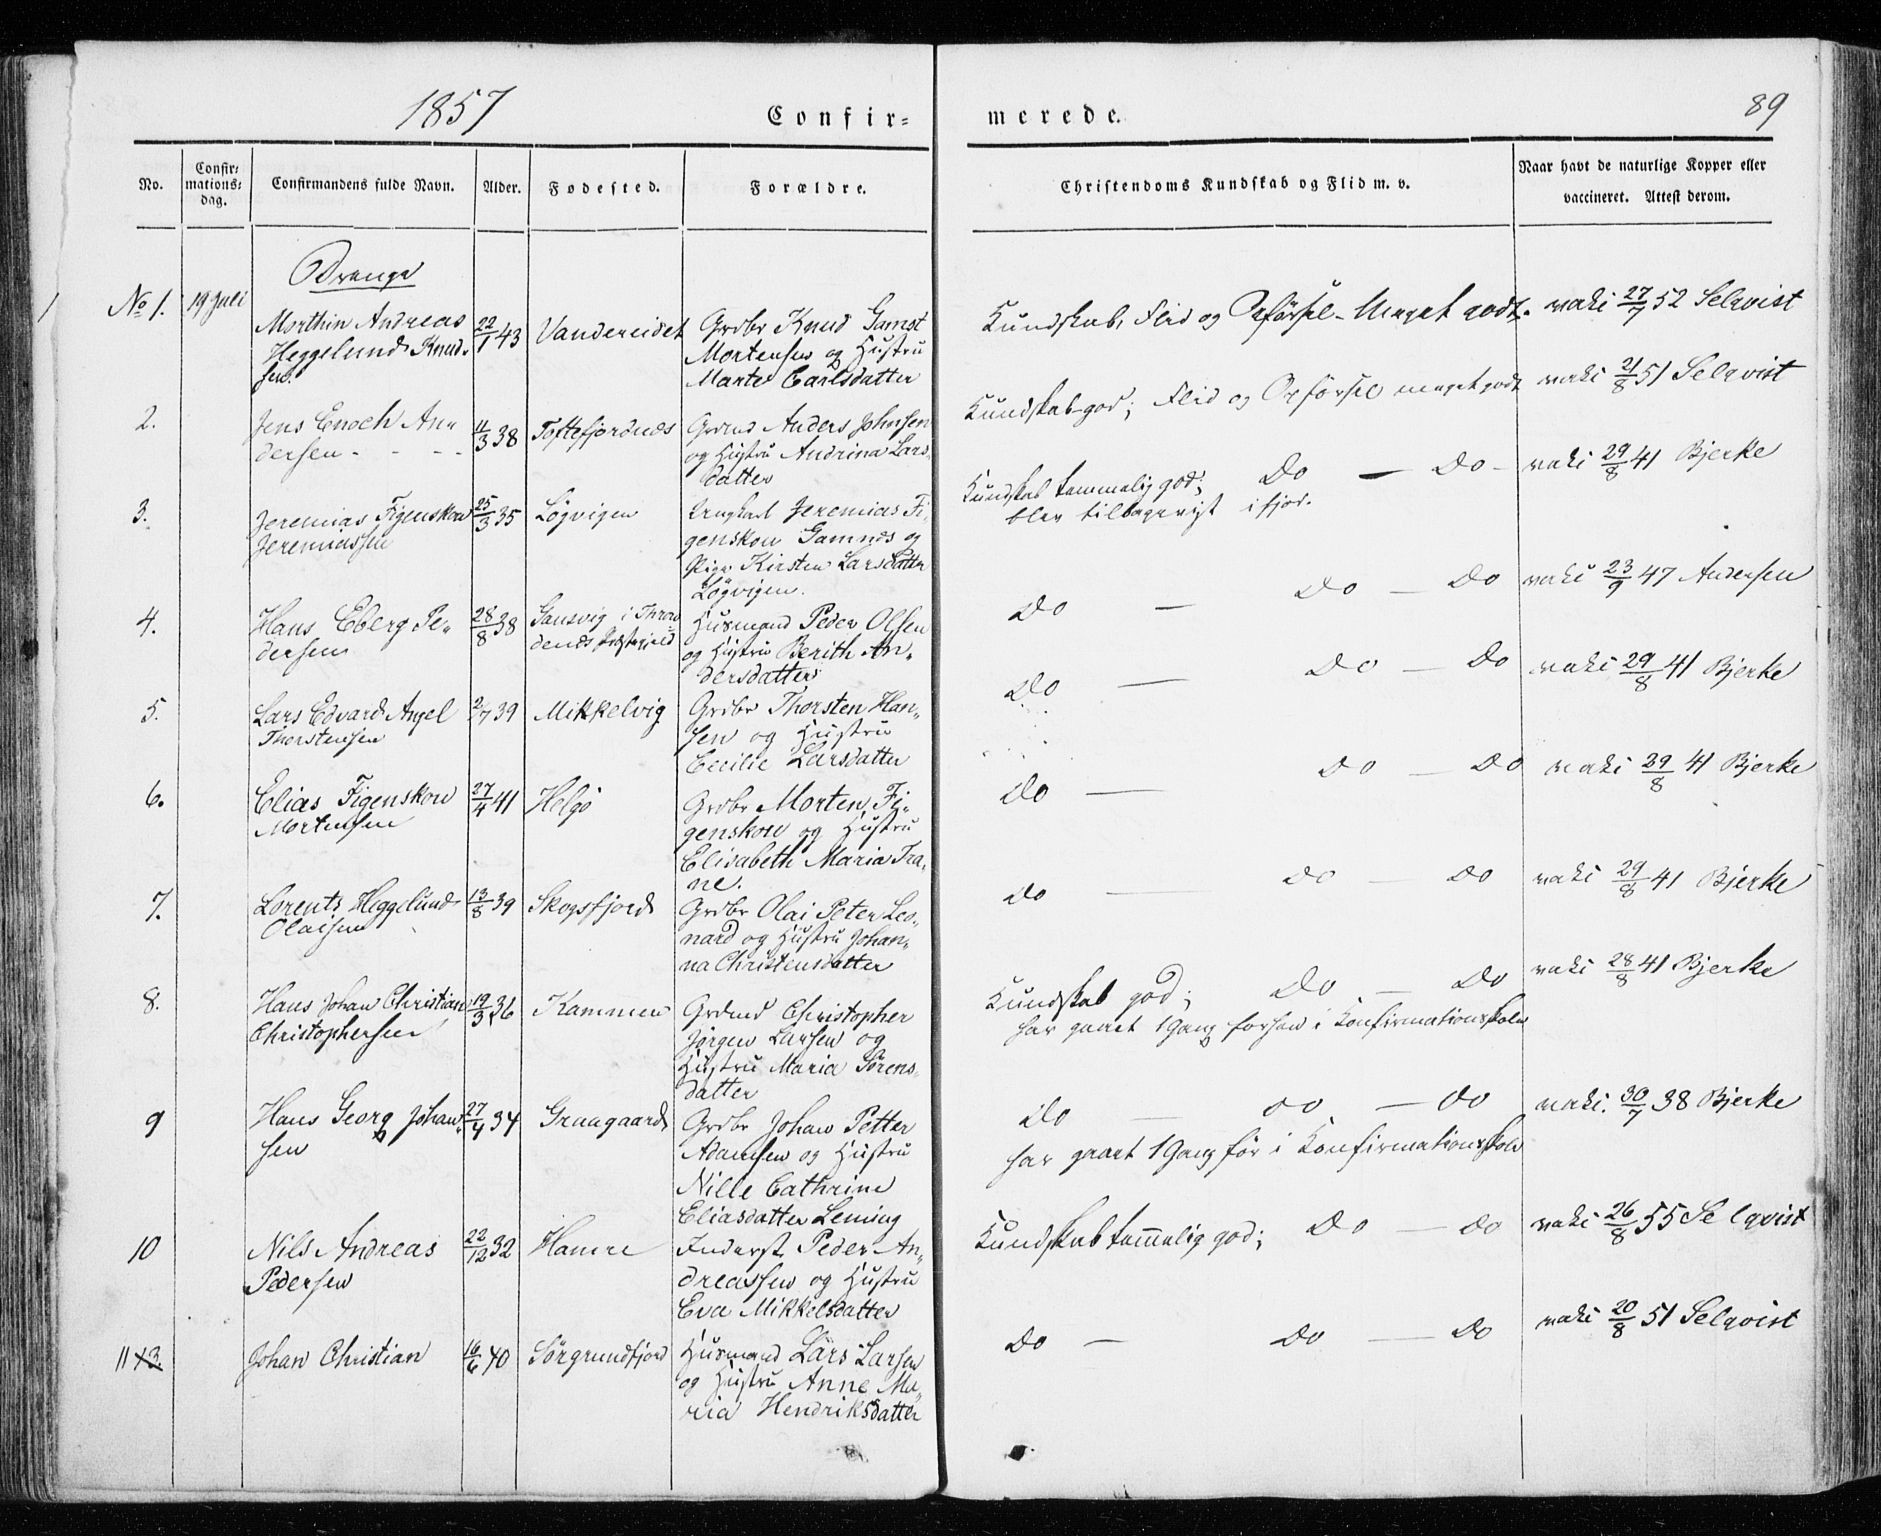 1857
Confir-
merede.
89
No.
Confir-
mations-
dag.
Confirmandens fulde Navn.
Alder.
Fødested.
Forældre.
Christendoms Kundskab og Flid m. v.
Naar havt de naturlige Kopper eller
vaccineret. Attest derom.
Drenge
1 No 1. 19 Juli
Morthin Andreas
Heggelund Knud-
sen.
22/1 43
Vandereidet
Grdbr Knud Gamst
Mortensen og Hustru
Marte Carlsdatter
Kundskab, Flid og Opførsel - Meget godt.
vaks 27/7 52 Selqvist
2.
Jens Enoch An-
dersen - - - -
11/3 38
Toftefjordnæs
Grdmd Anders Johnsen
og Hustru Andrina Lars-
datter
Kundskab god; Flid og Opførsel meget godt
vaks 21/8 51 Selqvist
3.
Jeremias Figenskou
Jeremiassen
25/3 35
Løgvigen
Ungkarl Jeremias Fi-
genskou Gamnæs og
Pige Kirsten Larsdatter
Løgvigen.
Kundskab temmelig god; Do - Do -
blev tilbagevist i fjor.
vaks 29/8 41 Bjerke
4.
Hans Eberg Pe-
dersen
28/8 38
Gausvig i Thron-
denæs Præstegjeld
Husmand Peder Olsen
og Hustru Berith An-
dersdatter
Do - Do - Do
vaks 23/9 47 Andersen
5.
Lars Edvard Angel
Thorstensen
2/7 39
Mikkelvig
Grdbr Thorsten Han-
sen og Hustru
Cecilie Larsdatter
Do - Do - Do
vaks 29/8 41 Bjerke
6.
Elias Figenskou
Mortensen
27/4 41
Helgø
Grdbr Morten Fi-
genskou og Hustru
Elisabeth Maria Tra-
ne.
Do - Do - Do
vaks 29/8 41 Bjerke
7.
Lorents Heggelund
Olaisen
13/8 39
Skogsfjord
Grdbr Olai Peter Leo-
nard og Hustru Johan-
na Christensdatter
Do - Do - Do
vaks 29/8 41 Bjerke
8.
Hans Johan Christian
Christophersen
19/3 36
Kammen
Grdmd Christopher
Jørgen Larsen og
Hustru Maria Sørens-
datter
Kundskab god; Do - Do
har gaaet 1 Gang forhen i Konfirmationsskole
vaks 28/8 41 Bjerke
9
Hans Georg Johan-
sen
27/4 34
Graagaard
Grdbr Johan Petter
Adamsen og Hustru
Nille Cathrine
Eliasdatter Leming
Do Do - Do
har gaaet 1 Gang før i Konfirmationsskole
vaks. 30/7 38 Bjerke
10
Nils Andreas
Pedersen
22/12 32
Hamre
Inderst Peder An-
dreassen og Hustru
Eva Mikkelsdatter
Kundskab temmelig god; Do - Do
vaks 26/8 55 Selqvist
11
Johan Christian
16/6 40
Sørgrundfjord
Husmand Lars Larsen
og Hustru Anne Ma-
ria Hendriksdatter
Do - Do - Do
vaks 20/8 51 Selqvist